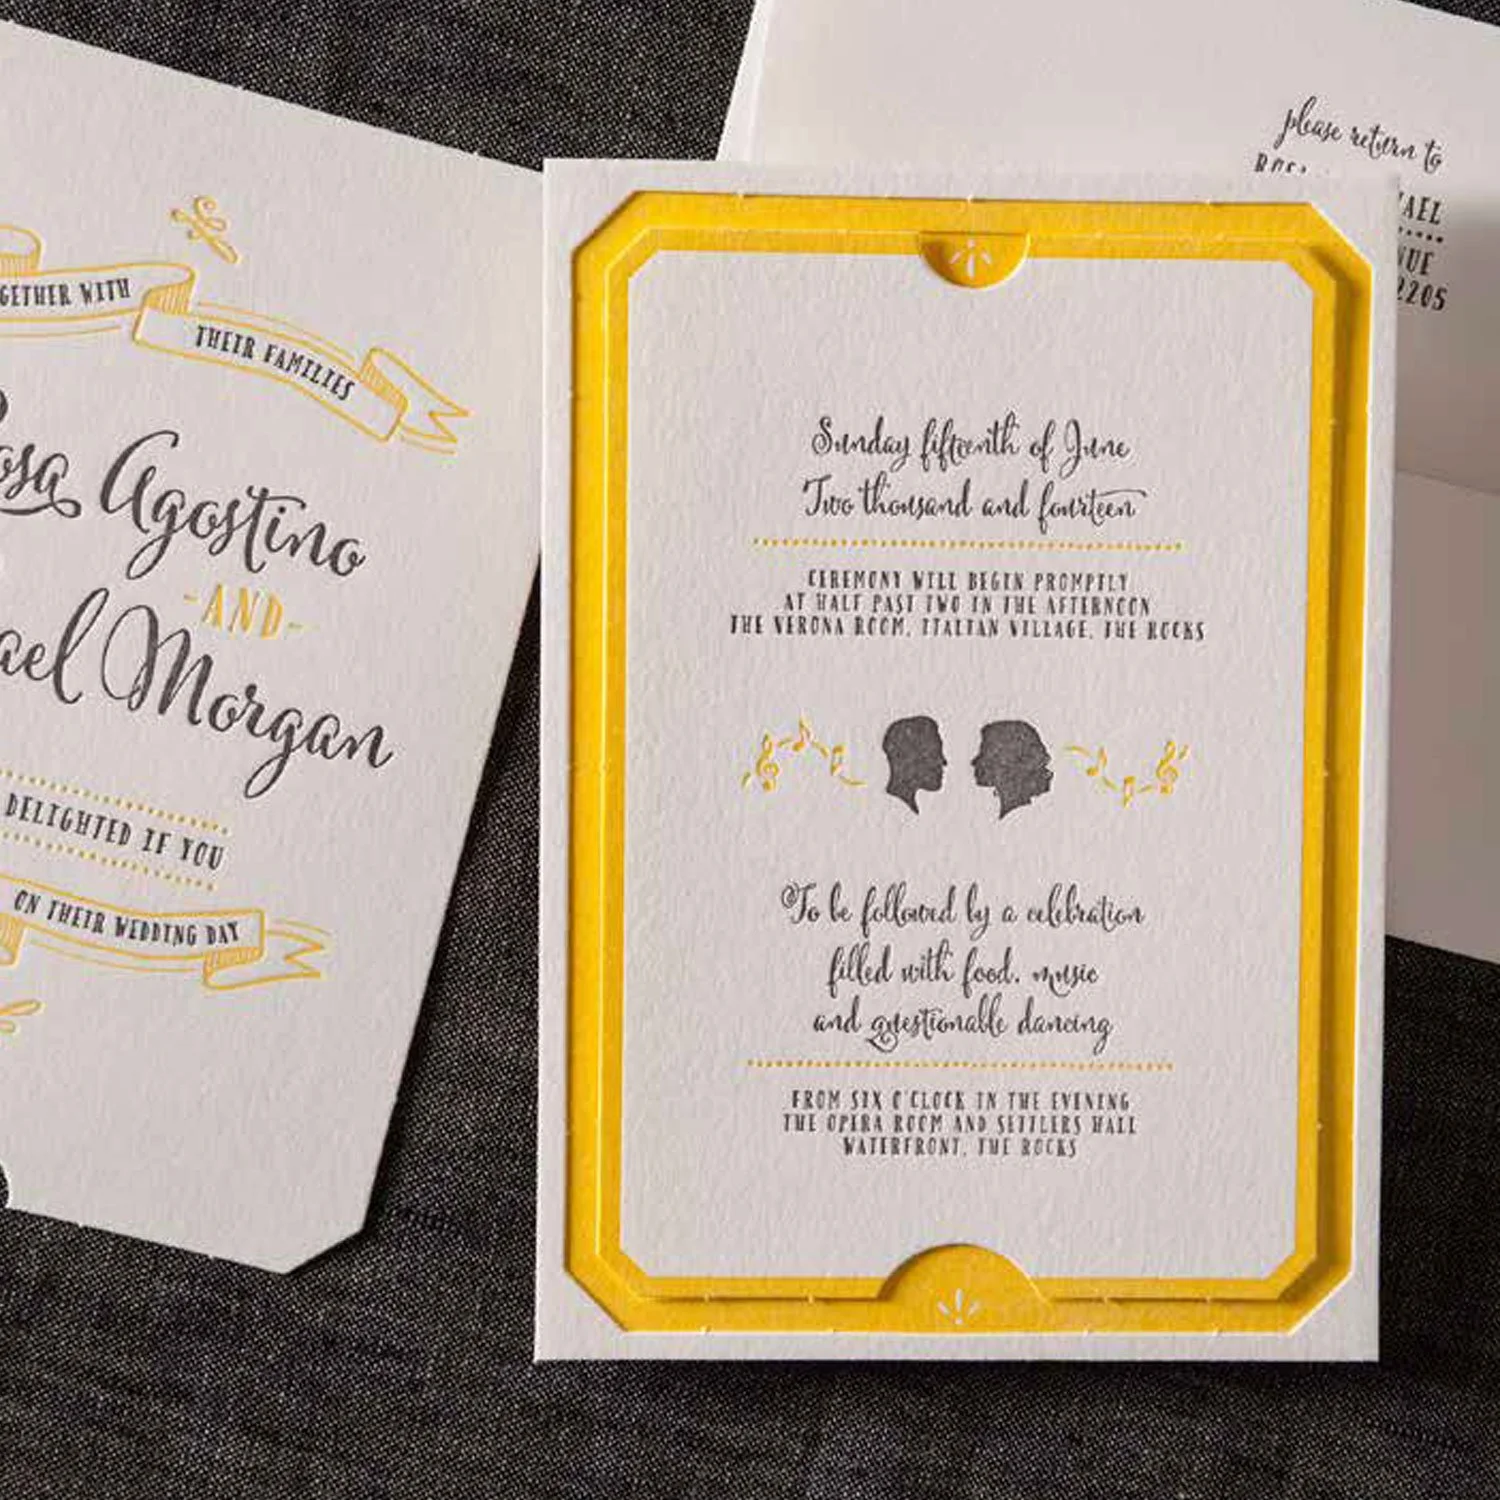 GETHER WITH
THEIR FAMILIES
osa Agostino
-AND-
ael Morgan
DELIGHTED IF YOU
ON THEIR WEDDING DAY
please return to
AEL
2205
Sunday fifteenth of June
Two thousand and fourteen
CEREMONY WILL BEGIN PROMPTLY
AT HALF PAST TWO IN THE AFTERNOON
THE VERONA ROOM, ITALIAN VILLAGE, THE ROCKS
To be followed by a celebration
filled with food, music
and questionable dancing
FROM SIX O'CLOCK IN THE EVENING
THE OPERA ROOM AND SETTLERS HALL
WATERFRONT, THE ROCKS